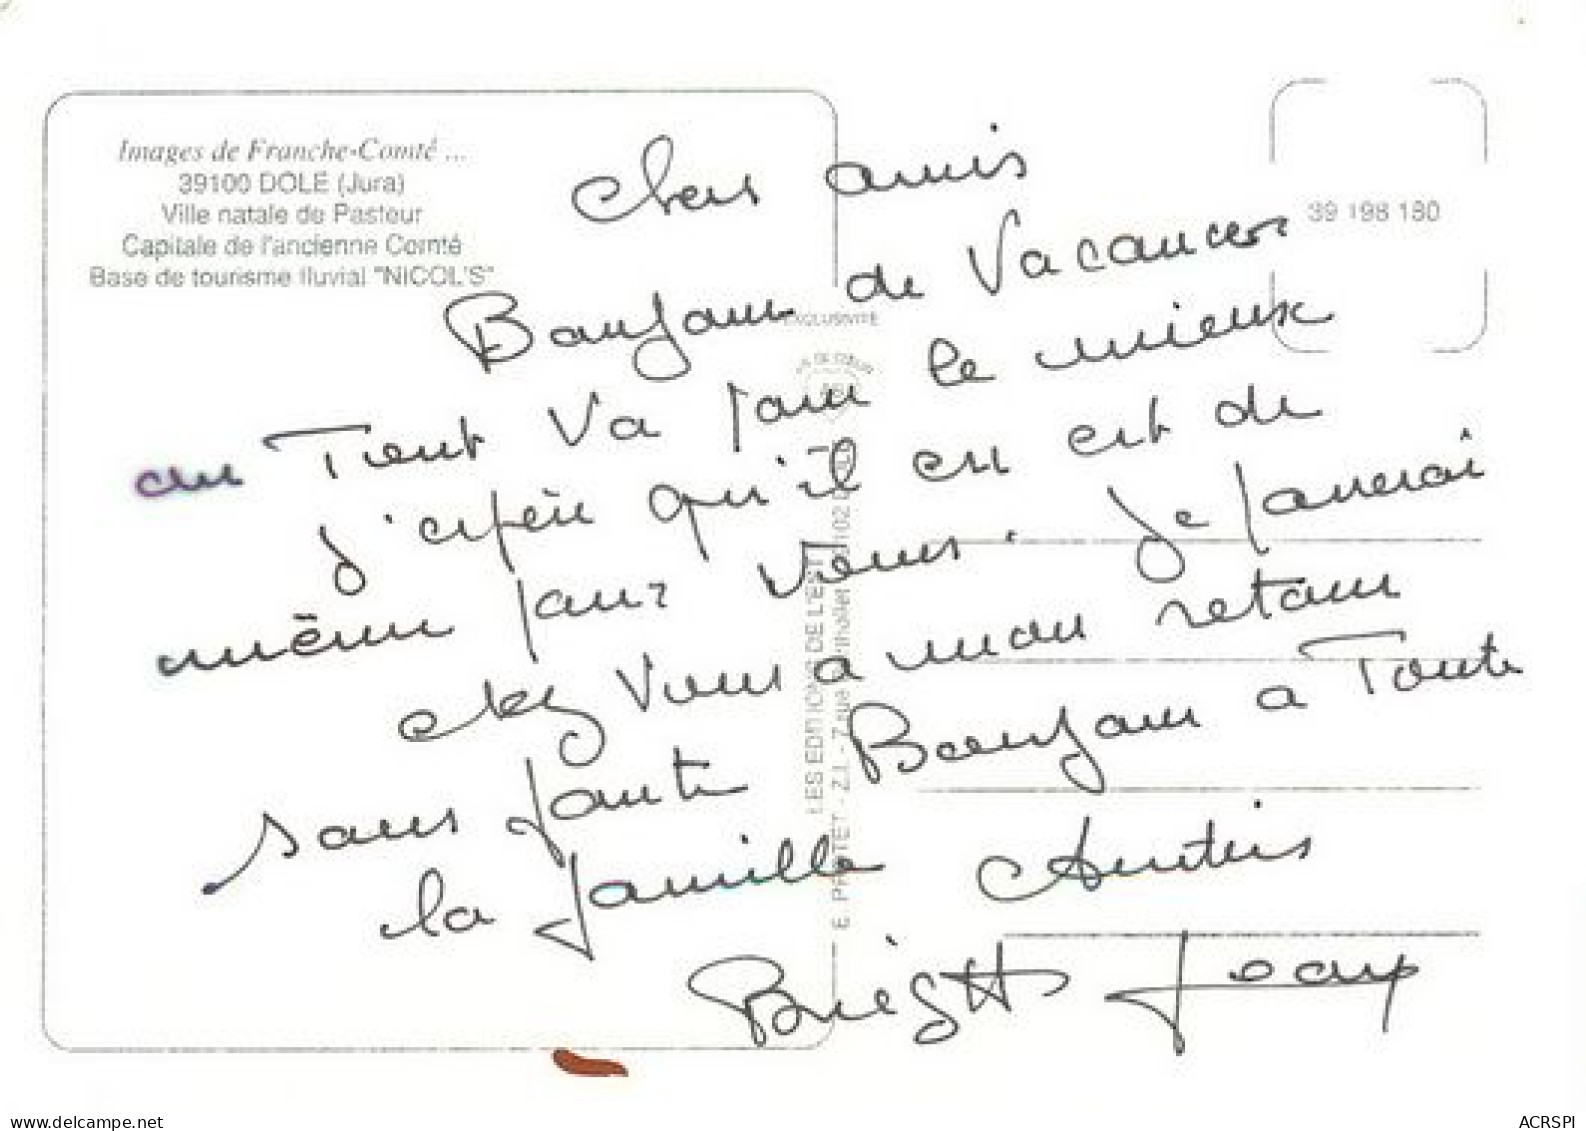 Images de Franche-Comté ...
39100 DOLE (Jura)
Ville natale de Pasteur
Capitale de l'ancienne Comté
Base de tourisme fluvial "NICOL'S"
39 198 180
EXCLUSIVITÉ
LES EDITIONS DE L'EST
E. PROTET - Z.I. - 7 rue
Chers amis
Bonjour de Vacances
ou Tout Va pour le mieux
j'espère qu'il en est de
même pour vous. Je passerai
chez vous a mon retour
sans faute Bonjour a Toute
la famille Amities
www.delcampe.net
ACRSPI